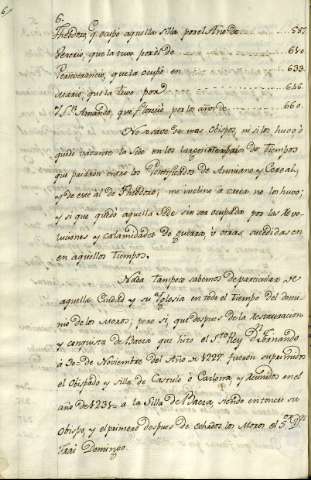 6.
Theodoro, q.e ocupó aquella silla por el Año de 
Venerio, que la tuvo por el de
Perseverancio, que la ocupó en 633.
Marcos, que la tuvo por el 646
y S.n Amando, que floreció por los años de 660.
No se save de mas obispos, ni si los huvo ó
quedó vacante la Sede en los largos intervalos de Tiempos
que pasaron entre los Pontificados de Annuano y Cereal,
y de este al de Theodoro; me inclino á creer no los huvo;
y si que quedó aquella Sede sin ser ocupada por las Revo-
luciones y calamidades de guerra ú otras sucedidas en
en aquellos Tiempos.
Nada tampoco sabemos de particular de
aquella Ciudad y su Yglesia en todo el Tiempo del domi-
nio de los Moros; pero si, que despues de la Restauracion
y conquista de Baeza que hizo el S.to Rey D.n Fernando
á 30 de Noviembre del Año de 1227 fueron suprimidos
el Obispado y Silla de Castulo ó Cazlona, y reunidos en el
año de 1231 á la Silla de Baeza, siendo entonces su
obispo, y el primero despues de echados los Moros el S.or D.n
Frai Domingo.